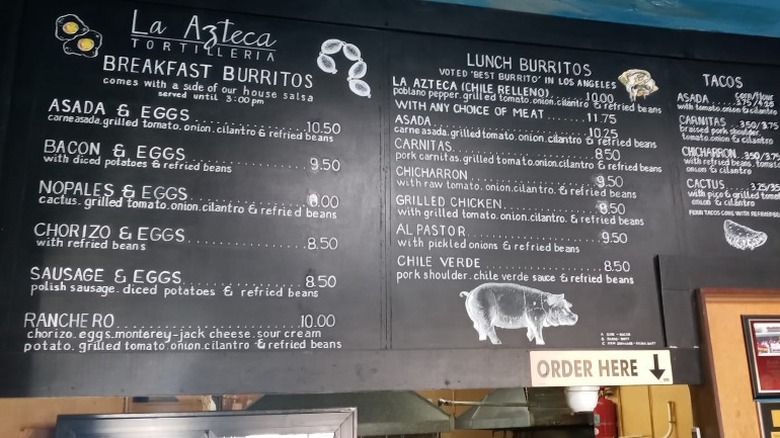 La Azteca
TORTILLERIA
BREAKFAST BURRITOS
comes with a side of our house salsa
served until 3:00pm
ASADA & EGGS 10.50
carne asada.grilled tomato.onion.cilantro & refried beans
BACON & EGGS 9.50
with diced potatoes & refried beans
NOPALES & EGGS 8.00
cactus.grilled tomato.onion.cilantro & refried beans
CHORIZO & EGGS 8.50
with refried beans
SAUSAGE & EGGS 8.50
polish sausage.diced potatoes & refried beans
RANCHERO 10.00
chorizo.eggs.monterey-jack cheese.sour cream
potato.grilled tomato.onion.cilantro & refried beans
LUNCH BURRITOS
VOTED 'BEST BURRITO' IN LOS ANGELES
LA AZTECA (CHILE RELLENO) 10.00
poblano pepper.grilled tomato.onion.cilantro & refried beans
WITH ANY CHOICE OF MEAT 11.75
ASADA 10.25
carne asada.grilled tomato.onion.cilantro & refried beans
CARNITAS 8.50
pork carnitas.grilled tomato.onion.cilantro & refried beans
CHICHARRON 9.50
with raw tomato.onion.cilantro & refried beans
GRILLED CHICKEN 8.50
with grilled tomato.onion.cilantro & refried beans
AL PASTOR 9.50
with pickled onions & refried beans
CHILE VERDE 8.50
pork shoulder.chile verde sauce & refried beans
TACOS
corn/flour
ASADA 3.75/4.25
with tomato onion & cilantro
CARNITAS 3.50/3.75
braised pork shoulder.
tomato onion & cilantro
CHICHARRON 3.50/3.75
with refried beans. tomato
onion & cilantro
CACTUS 3.25/3.5
with pico & grilled
onion & cilantro
ORDER HERE